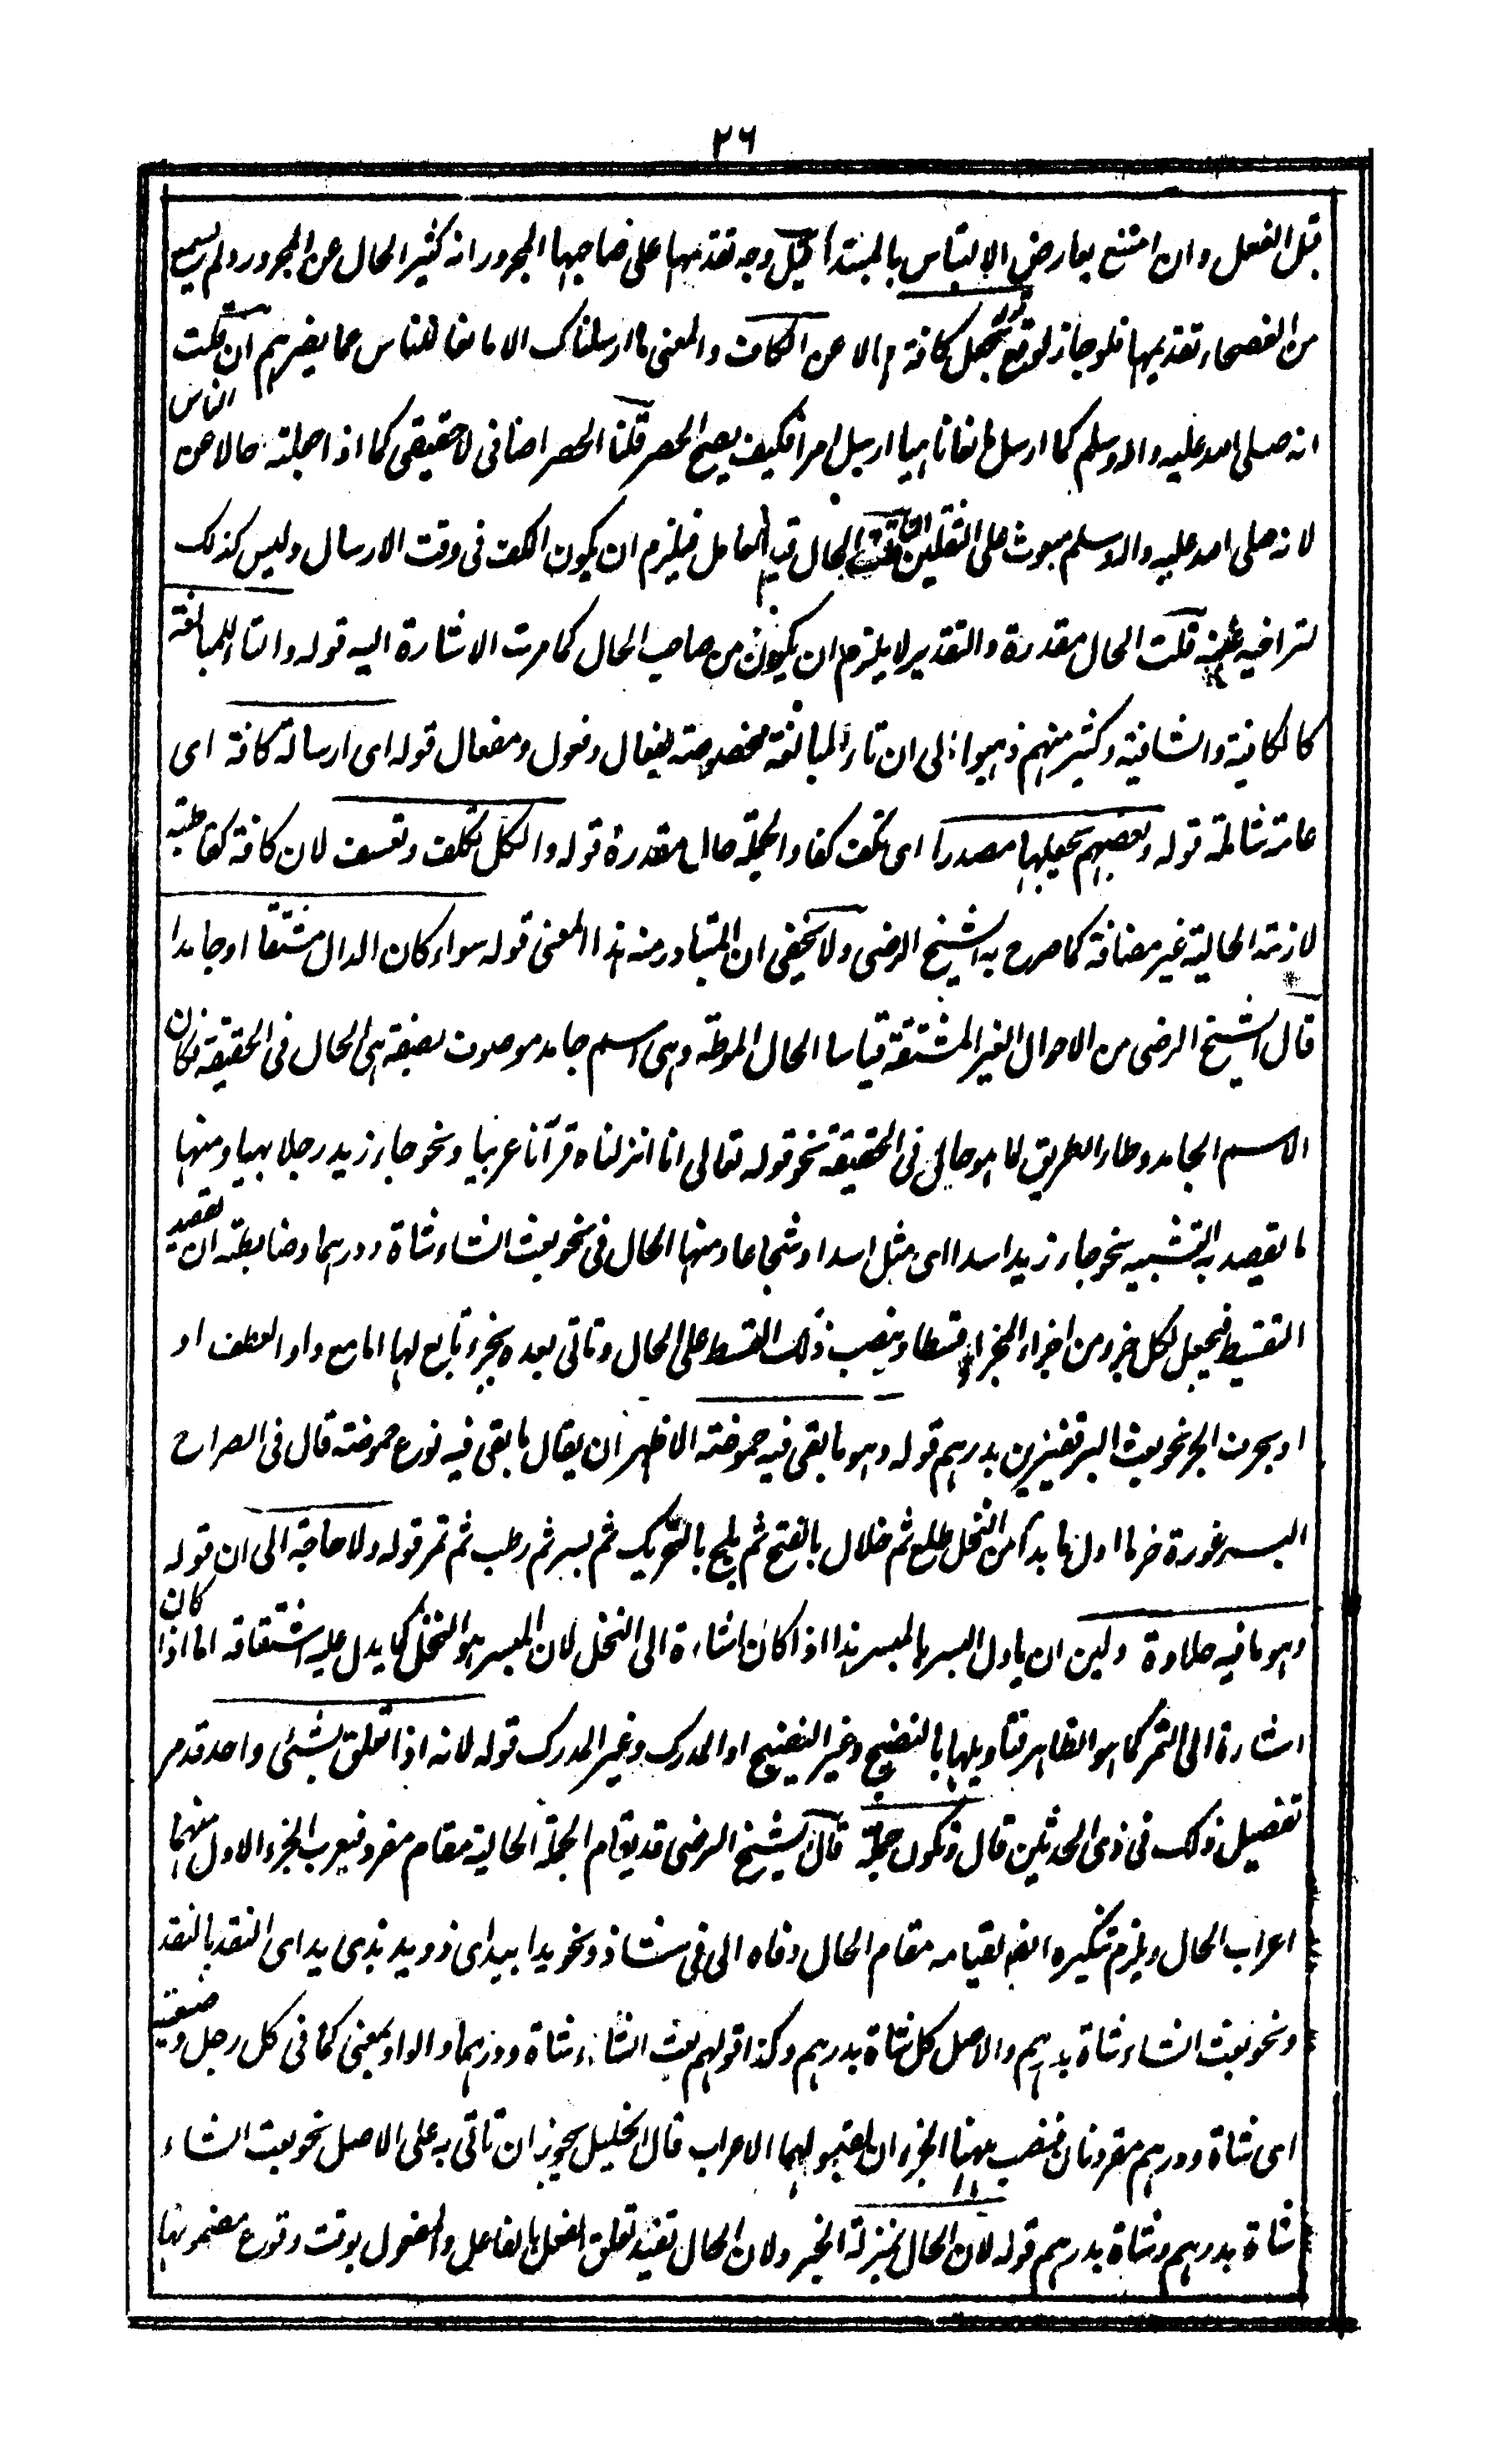 ٢٦
قبل الفعل وان امتنع بعارض الالتباس بالمبتدأ قيل وجه تقديمها على صاحبها المجرور انه كثير الحال عن المجرور ولم يسمع
من الفصحاء تقديمها فلو جاز لوقع قوله بجعل كافة حالا عن الكاف والمعنى ما ارسلناك الا مانعا للناس عما يضرهم ان قلت
انه صلى الله عليه واله وسلم كما ارسل مانعا ناهيا ارسل امرا فكيف يصح الحصر قلنا الحصر اضافى لا حقيقى كما اذا جعلته حالا عن الناس
لانه صلى الله عليه واله وسلم مبعوث على الثقلين ان قلت الحال قيد العامل فيلزم ان يكون الكف فى وقت الارسال وليس كذلك
لتراخيه عنه قلت الحال مقدرة والتقدير لا يلزم ان يكون من صاحب الحال كما مرت الاشارة اليه قوله والتاء للمبالغة
كالكافية والشافية وكثير منهم ذهبوا الى ان تاء المبالغة مخصوصة بفعال وفعول ومفعال قوله اى ارسالة كافة اى
عامة شاملة قوله وبعضهم يجعلها مصدرا اى تكف كفا والجملة حال مقدرة قوله والكل تكلف وتعسف لان كافة كقاطبة
لازمة الحالية غير مضافة كما صرح به الشيخ الرضى ولا يخفى ان المتبادر منه هذا المعنى قوله سواء كان الدال مشتقا او جامدا
قال الشيخ الرضى من الاحوال الغير المشتقة قياسا الحال الموطئة وهى اسم جامد موصوف بصفة هى الحال فى الحقيقة فكان
الاسم الجامد وطاء الطريق لما هو حال فى الحقيقة نحو قوله تعالى انا انزلناه قرآنا عربيا ونحو جاء زيد رجلا بهيا ومنها
ما يقصد به التشبيه نحو جاء زيد اسدا اى مثل اسد او شجاعا ومنها الحال فى نحو بعت الشاء شاة ودرهما وضابطته ان تقصد
التقسيط فيجعل لكل جزء من اجزاء المجزا قسطا وينصب ذلك القسط على الحال وتاتى بعده بجزء تابع لها اما مع واو العطف او
او بحرف الجر نحو بعت البر قفيزين بدرهم قوله وهو ما بقى فيه حموضة الاظهر ان يقال ما بقى فيه نوع حموضة قال فى الصراح
البسر غورة خرما اول ما بدأ من النخل طلع ثم خلال بالفتح ثم بلح بالتحريك ثم بسر ثم رطب ثم تمر قوله ولا حاجة الى ان قوله
وهو ما فيه حلاوة ولين ان ياول البسر بالمبسر هذا اذا كان اشارة الى النخل لان المبسر هو النخل كما يدل عليه اشتقاقه اما اذا كان
اشارة الى التمر كما هو الظاهر فتاويلها بالنضيج وغير النضيج او المدرك وغير المدرك قوله لانه اذا تعلق بشئ واحد قد مر
تفصيل ذلك فى ذوى الحدثين قال وتكون جملة قال الشيخ الرضى قد يقام الجملة الحالية مقام مفرد فيعرب الجزء الاول منهما
اعراب الحال ويلزم تنكيره ايضا لقيامه مقام الحال وفاه الى فى شاذ ونحو يدا بيد اى ذو يد بذى يد اى النقد بالنقد
ونحو بعت الشاء شاة بدرهم والاصل كل شاة بدرهم وكذا قولهم بعت الشاء شاة ودرهما والواو بمعنى كما فى كل رجل وضيعته
اى شاة ودرهم مقرونان فنصب ههنا الجزءان لقبولهما الاعراب قال الخليل يجوز ان تاتى به على الاصل نحو بعت الشاء
شاة بدرهم وشاة بدرهم قوله لان الحال بمنزلة الخبر ولان الحال تفيد تعلق الفعل بالفاعل والمفعول بوقت وقوع مضمونها